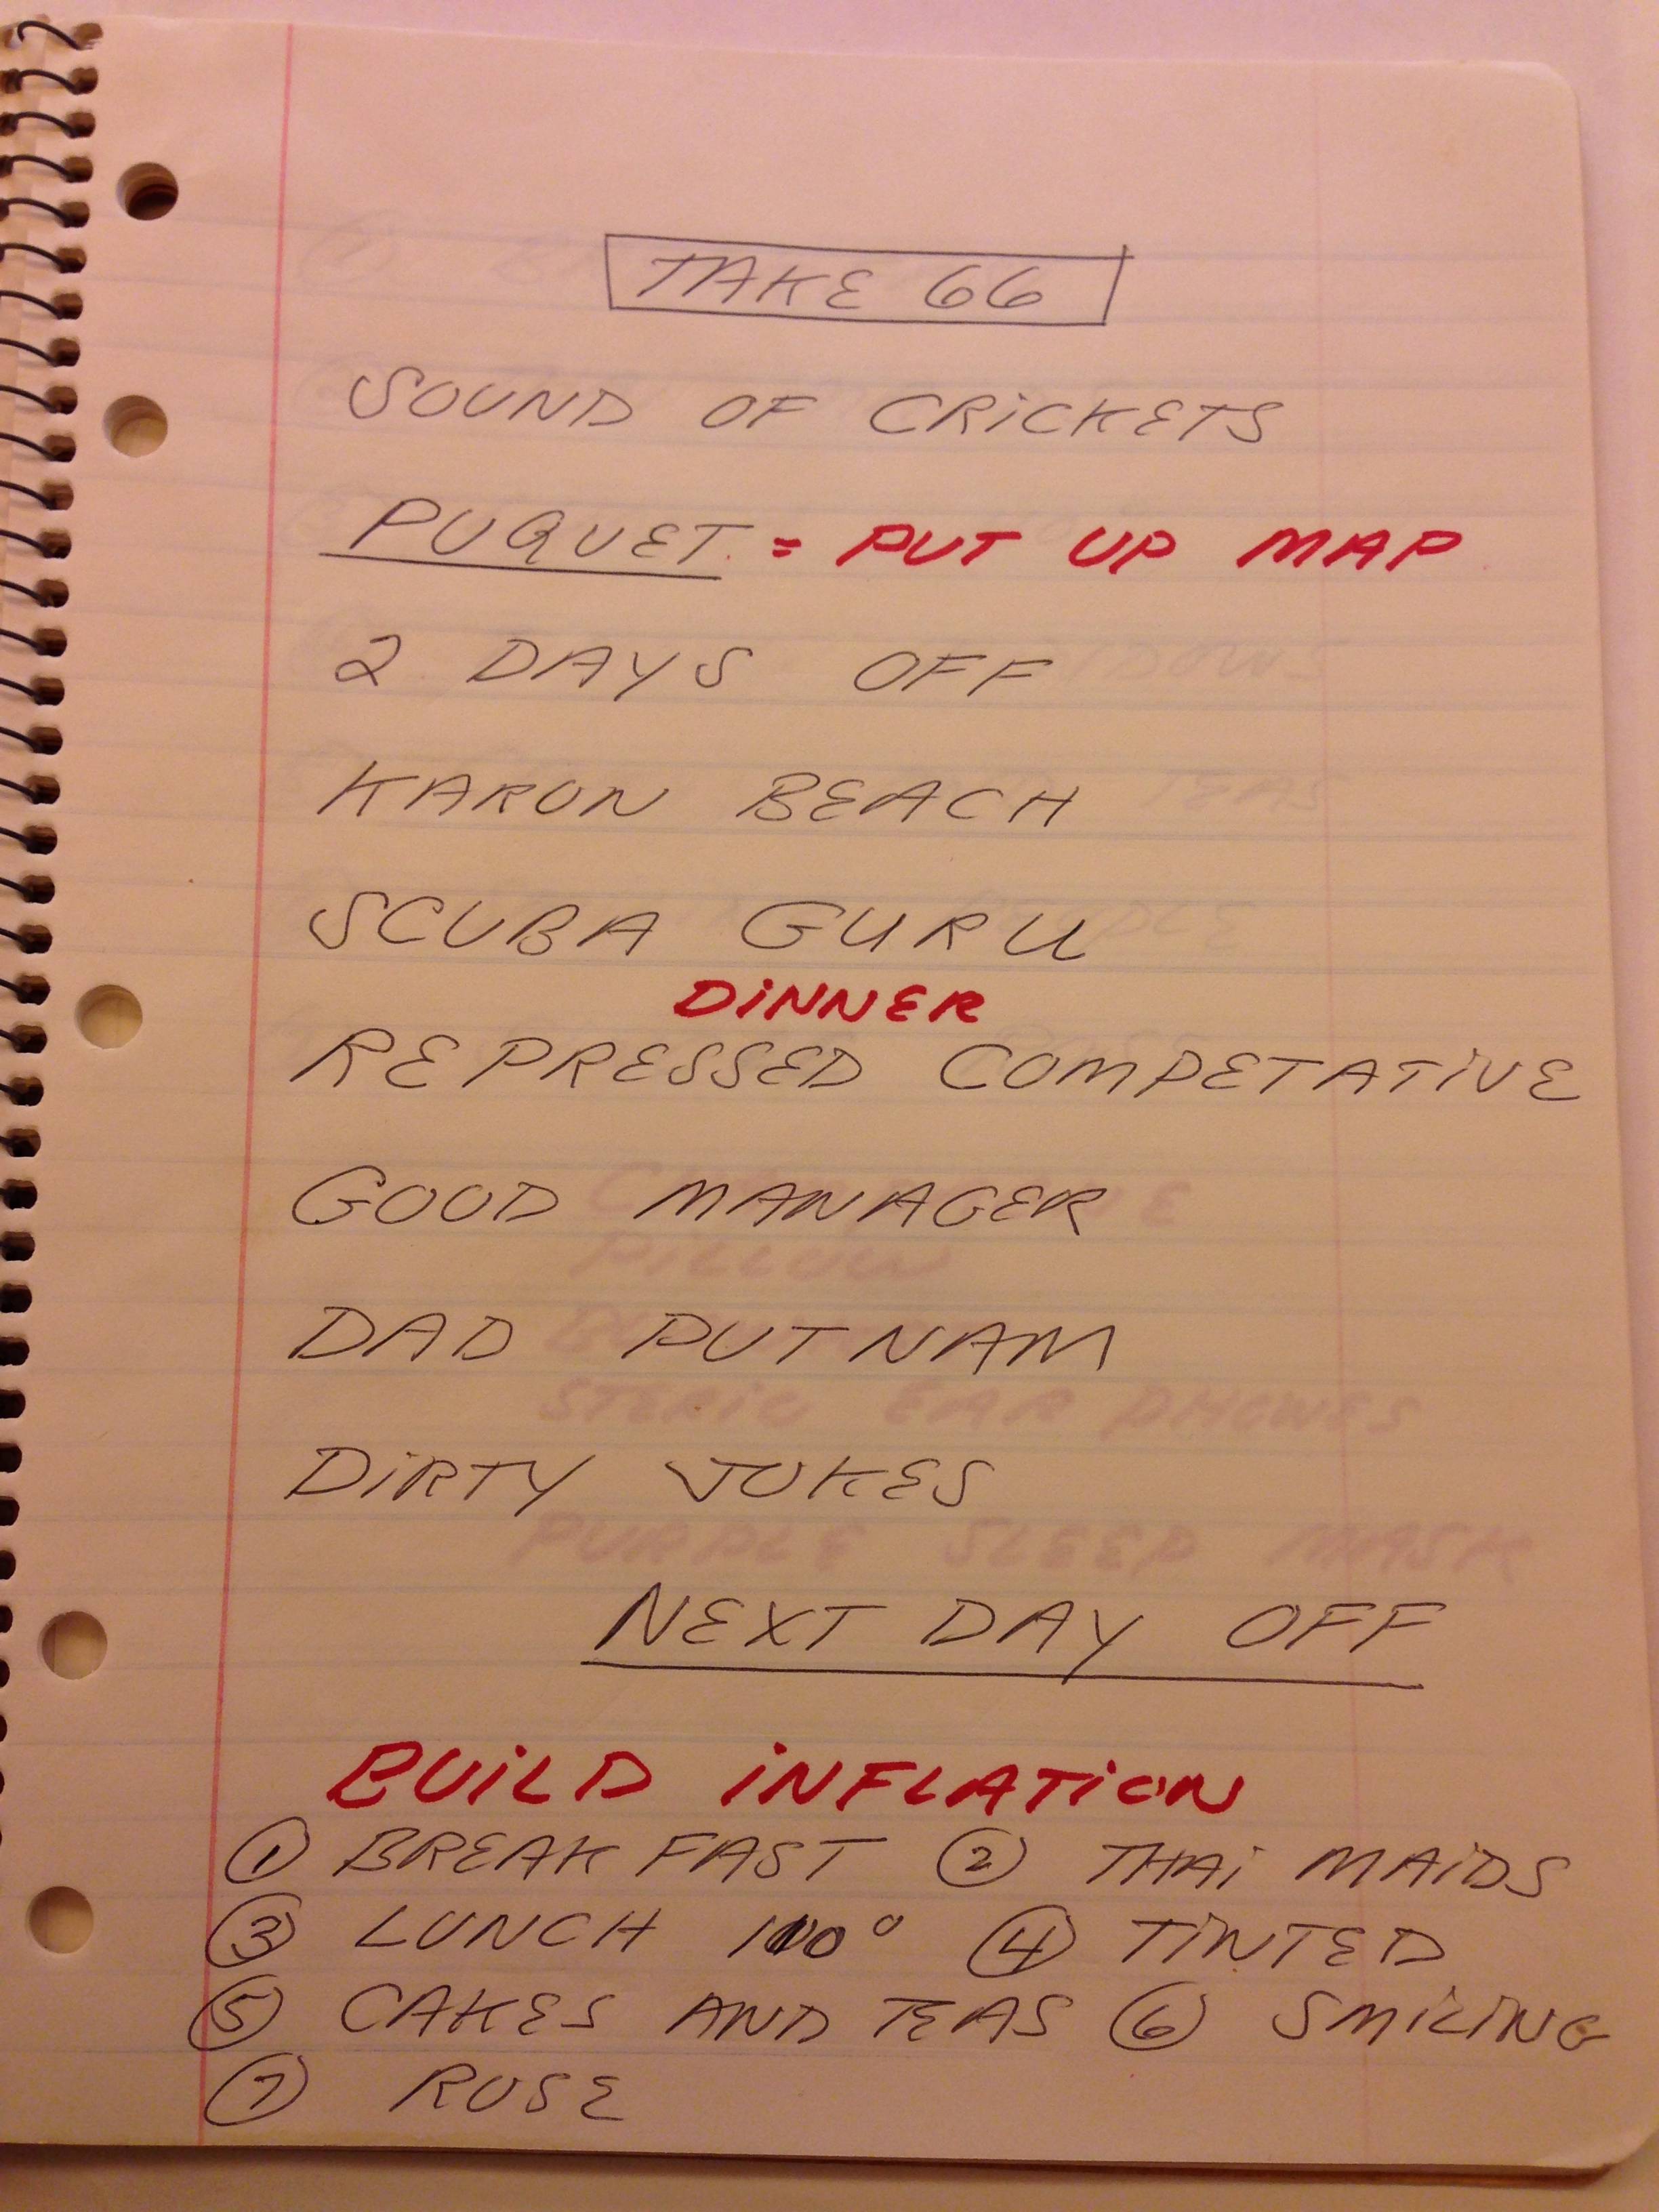 TAKE 66
SOUND OF CRiCKETS
PUQUET = PUT UP MAP
2 DAYS OFF
KARON BEACH
SCUBA GURU
DiNNER
REPRESSED COMPETATiVE
GOOD MANAGER
DAD PUTNAM
DiRTY JOKES
NEXT DAY OFF
BUiLD iNFLATiON
① BREAKFAST ② THAi MAiDS
③ LUNCH 100° ④ TiNTED
⑤ CAKES AND TEAS ⑥ SMiLiNG
⑦ ROSE